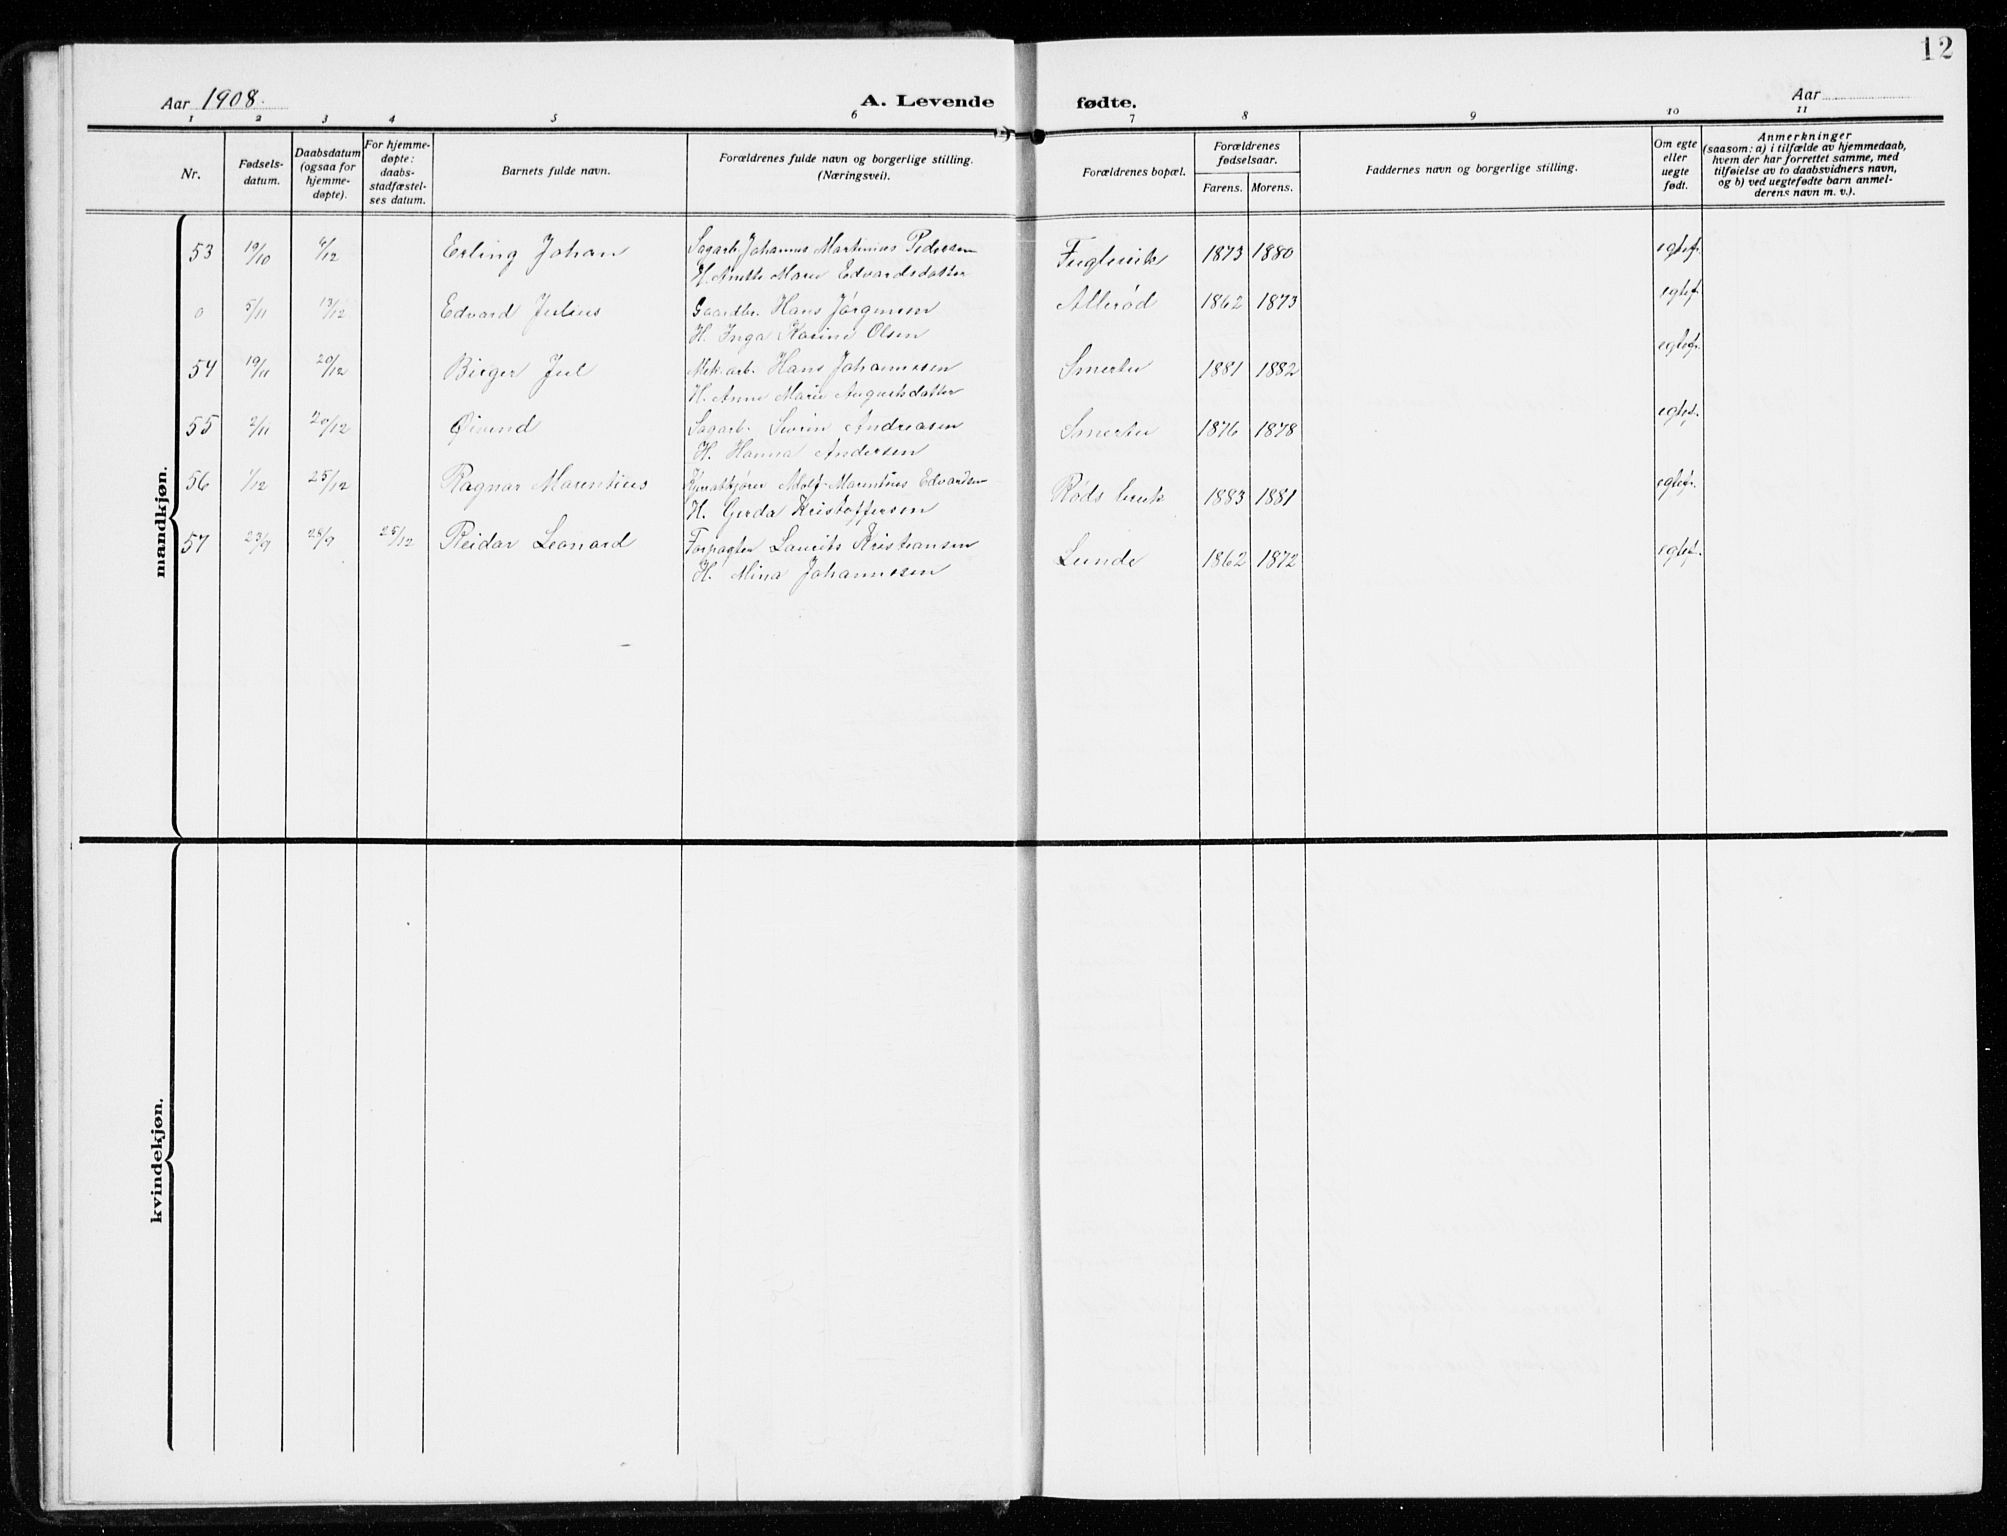 12
Aar 1908.
A. Levende fødte.
Aar
1 2 3 4 5 6 7 8 9 10 11
Nr.
Fødsels-
datum.
Daabsdatum
(ogsaa for
hjemme-
døpte).
For hjemme-
døpte:
daabs-
stadfæstel-
ses datum.
Barnets fulde navn.
Forældrenes fulde navn og borgerlige stilling.
(Næringsvei).
Forældrenes bopæl.
Forældrenes
fødselsaar.
Farens. Morens.
Faddernes navn og borgerlige stilling.
Om egte
eller
uegte
født.
Anmerkninger
(saasom: a) i tilfælde av hjemmedaab,
hvem der har forrettet samme, med
tilføielse av to daabsvidners navn,
og b) ved uegtefødte barn anmel-
derens navn m. v.).
mandkjøn.
53 19/10 6/12 Erling Johan Sagarb. Johannes Martinius Pedersen Fuglevik 1873 1880 egtef.
H. Anette Marie Edvardsdatter
0 5/11 13/12 Edvard Julius Gaardbr. Hans Jørgensen Allerød 1862 1873 egtef.
H. Inga Karine Olsen
54 19/11 20/12 Birger Jul Mek. arb. Hans Johannesen Smertu 1881 1882 egtef.
H. Anne Marie Augustsdatter
55 2/11 20/12 Øivind Sagarb. Severin Andreasen Smertu 1876 1878 egtef.
H. Hanna Andersen
56 1/12 25/12 Ragnar Marentius Adolf Marentius Edvardsen Røds bruk 1883 1881 egtef.
H. Gerda Kristoffersen
57 23/9 28/9 25/12 Reidar Leonard Forpagter Laurits Kristiansen Lunde 1862 1872 egtef.
H. Mina Johannesen
kvindekjøn.